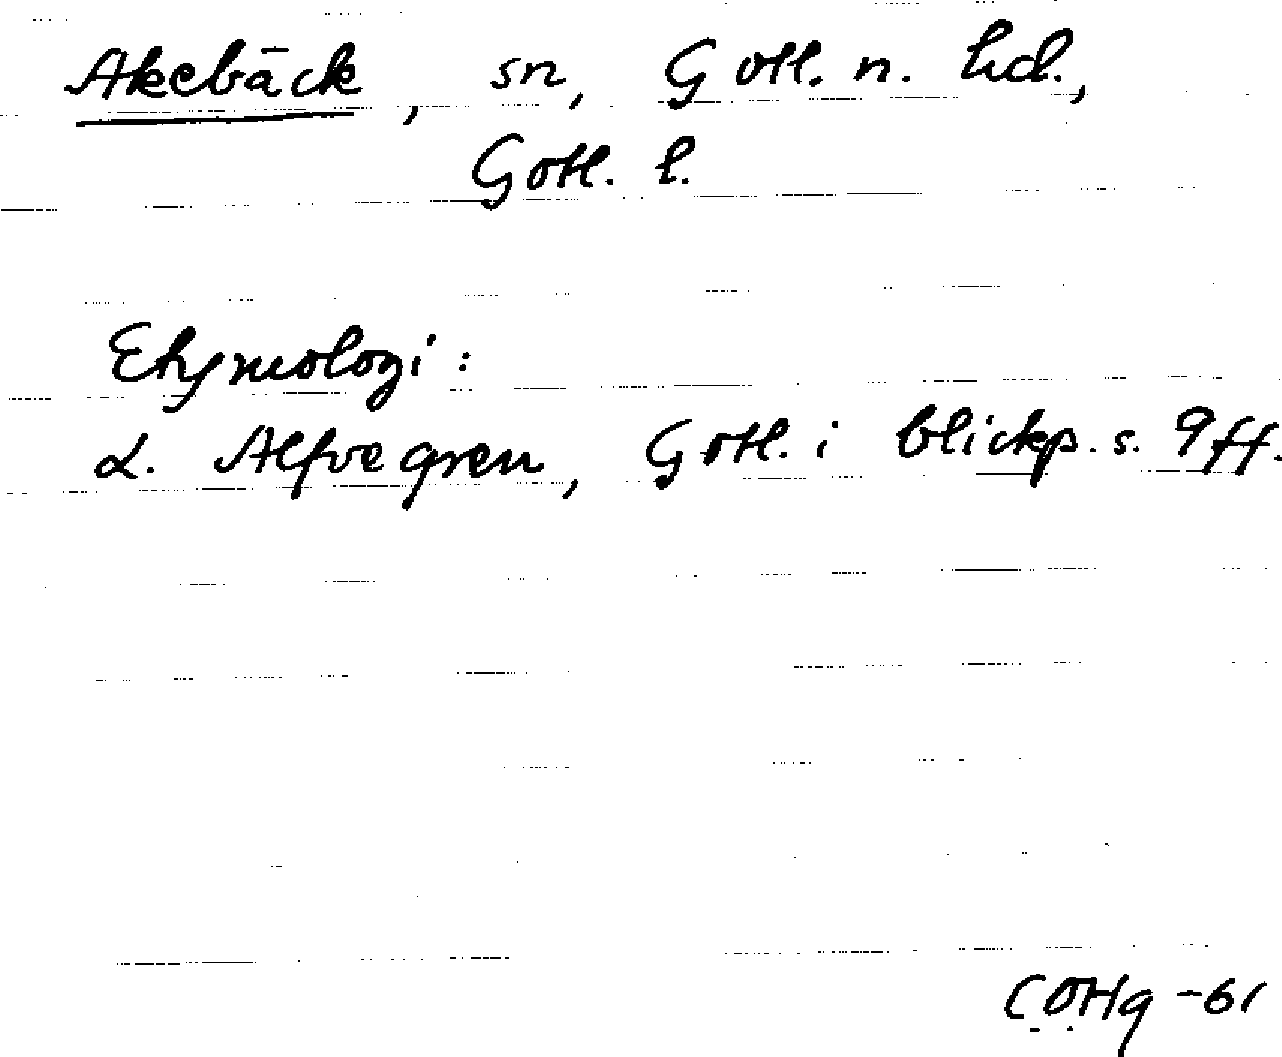 Akebäck, sn, Gotl. n. hd.,
Gotl. l.
Etymologi:
L. Alfvegren, Gotl. i blickp. s. 9 ff.
-61